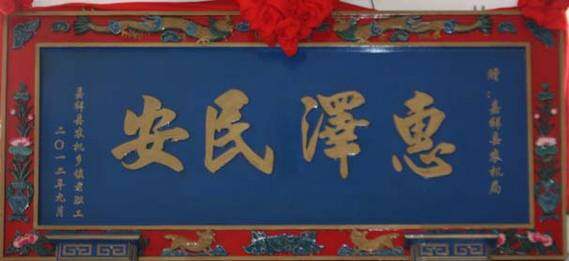 赠：嘉祥县农机局
惠澤民安
嘉祥县农机乡镇老职工
二〇一二年九月